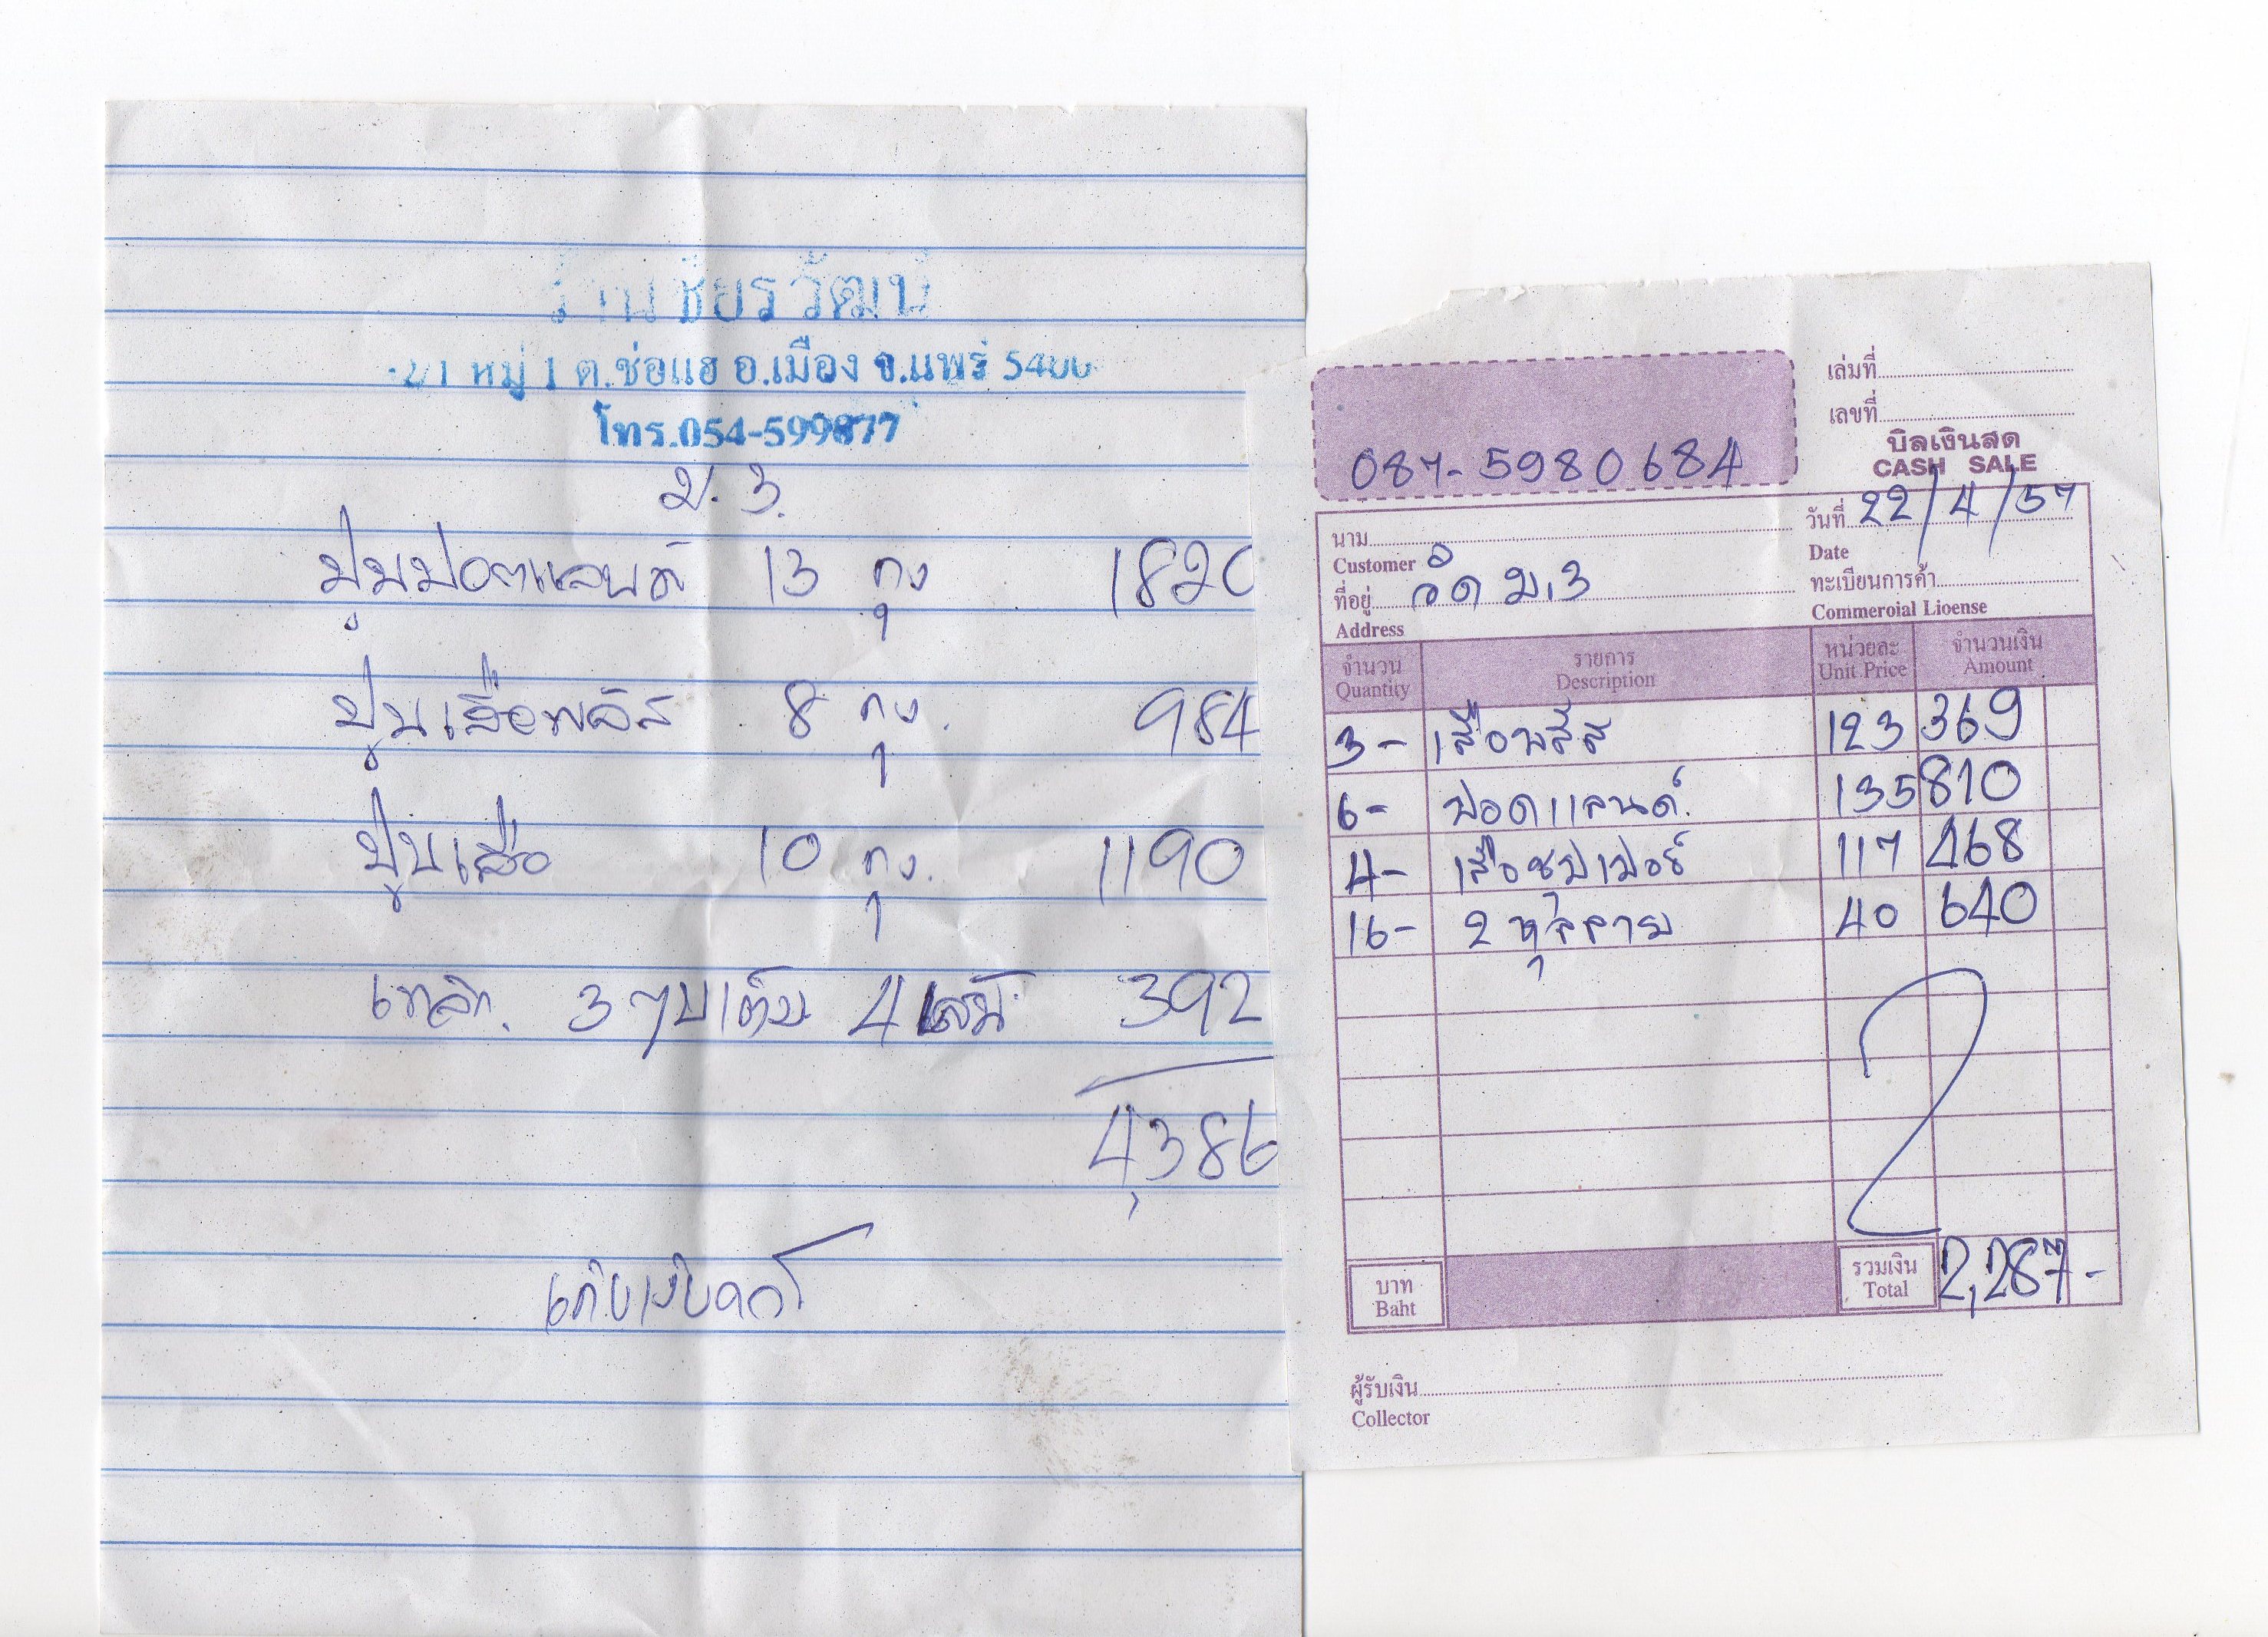 ร้านชัยรวัฒน์
หมู่ 1 ต.ช่อแฮ อ.เมือง จ.แพร่ 5400
โทร.054-599877
ม.3.
ปูนปอตแลนด์ 13 ถุง 1820
ปูนเสือพลัส 8 ถุง. 984
ปูนเสือ 10 ถุง. 1190
เหล็ก. 3 หุนเต็ม 4 เส้น 392
4,386
เก็บเงินแล้ว
087-5980684
เล่มที่
เลขที่
บิลเงินสด
CASH SALE
นาม
Customer
วันที่ 22/4/57
Date
ที่อยู่ วัด ม.3
Address
ทะเบียนการค้า
Commeroial Lioense
จำนวน รายการ หน่วยละ จำนวนเงิน
Quantity Description Unit Price Amount
3- เสือพลัส 123 369
6- ปอดแลนด์. 135 810
4- เสือซุปเปอร์ 117 468
16- 2 หุล 40 640
บาท
Baht
รวมเงิน
Total
2,287-
ผู้รับเงิน
Collector